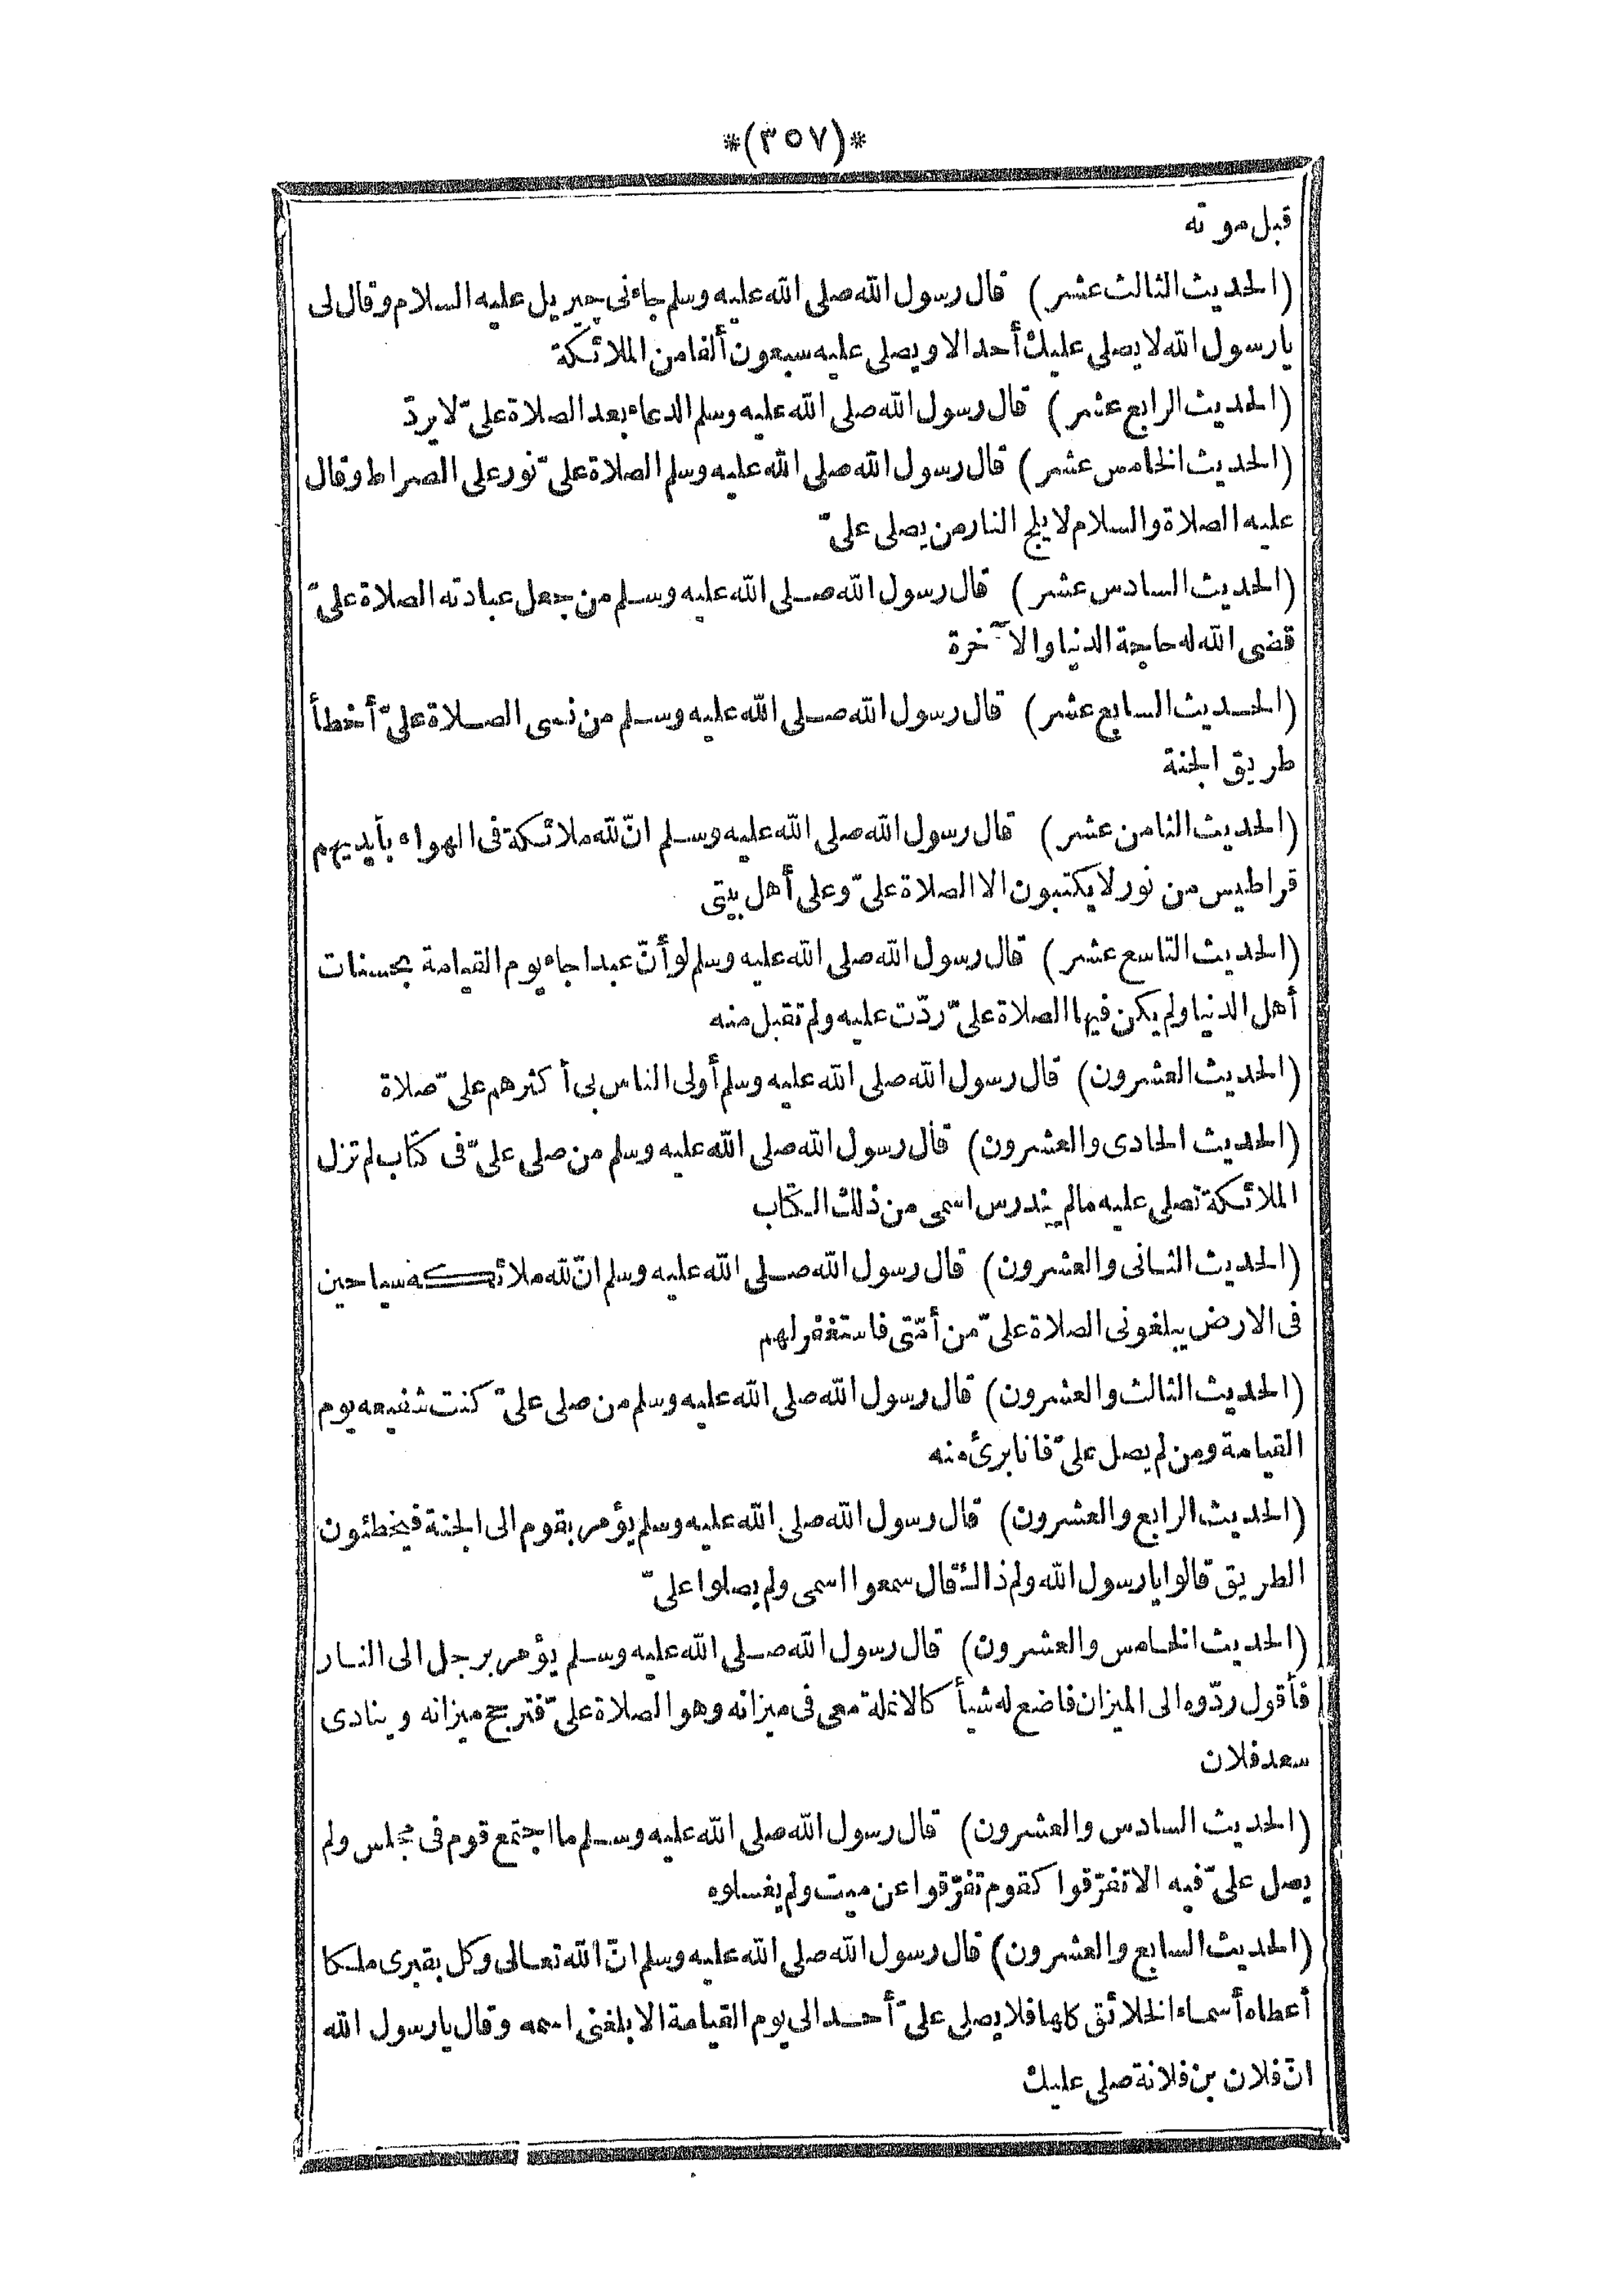 *(٣٥٧)*
قبل موته
(الحديث الثالث عشر) قال رسول الله صلى الله عليه وسلم جاءنى جبريل عليه السلام وقال لى
يارسول الله لا يصلى عليك أحد الا ويصلى عليه سبعون ألفا من الملائكة
(الحديث الرابع عشر) قال رسول الله صلى الله عليه وسلم الدعاء بعد الصلاة علىّ لا يردّ
(الحديث الخامس عشر) قال رسول الله صلى الله عليه وسلم الصلاة علىّ نور على الصراط وقال
عليه الصلاة والسلام لا يلج النار من يصلى علىّ
(الحديث السادس عشر) قال رسول الله صلى الله عليه وسلم من جعل عبادته الصلاة علىّ
قضى الله له حاجة الدنيا والآخرة
(الحديث السابع عشر) قال رسول الله صلى الله عليه وسلم من نسى الصلاة علىّ أخطأ
طريق الجنة
(الحديث الثامن عشر) قال رسول الله صلى الله عليه وسلم انّ لله ملائكة فى الهواء بأيديهم
قراطيس من نور لا يكتبون الا الصلاة علىّ وعلى أهل بيتى
(الحديث التاسع عشر) قال رسول الله صلى الله عليه وسلم لو أنّ عبدا جاء يوم القيامة بحسنات
أهل الدنيا ولم يكن فيها الصلاة علىّ ردّت عليه ولم تقبل منه
(الحديث العشرون) قال رسول الله صلى الله عليه وسلم أولى الناس بى أكثرهم علىّ صلاة
(الحديث الحادى والعشرون) قال رسول الله صلى الله عليه وسلم من صلى علىّ فى كتاب لم تزل
الملائكة تصلى عليه مالم يندرس اسمى من ذلك الكتاب
(الحديث الثانى والعشرون) قال رسول الله صلى الله عليه وسلم انّ لله ملائكة سياحين
فى الارض يبلغونى الصلاة علىّ من أمّتى فاستغفر لهم
(الحديث الثالث والعشرون) قال رسول الله صلى الله عليه وسلم من صلى علىّ كنت شفيعه يوم
القيامة ومن لم يصل علىّ فانا برىء منه
(الحديث الرابع والعشرون) قال رسول الله صلى الله عليه وسلم يؤمر بقوم الى الجنة فيخطئون
الطريق قالوا يارسول الله ولم ذاك قال سمعوا اسمى ولم يصلوا علىّ
(الحديث الخامس والعشرون) قال رسول الله صلى الله عليه وسلم يؤمر برجل الى النار
فأقول ردّوه الى الميزان فاضع له شيأ كالانملة معى فى ميزانه وهو الصلاة علىّ فترجح ميزانه وينادى
سعد فلان
(الحديث السادس والعشرون) قال رسول الله صلى الله عليه وسلم ما اجتمع قوم فى مجلس ولم
يصل علىّ فيه الا تفرّقوا كقوم تفرّقوا عن ميت ولم يغسلوه
(الحديث السابع والعشرون) قال رسول الله صلى الله عليه وسلم انّ الله تعالى وكل بقبرى ملكا
أعطاه أسماء الخلائق كلها فلا يصلى علىّ أحد الى يوم القيامة الا بلغنى اسمه وقال يارسول الله
انّ فلان بن فلانة صلى عليك